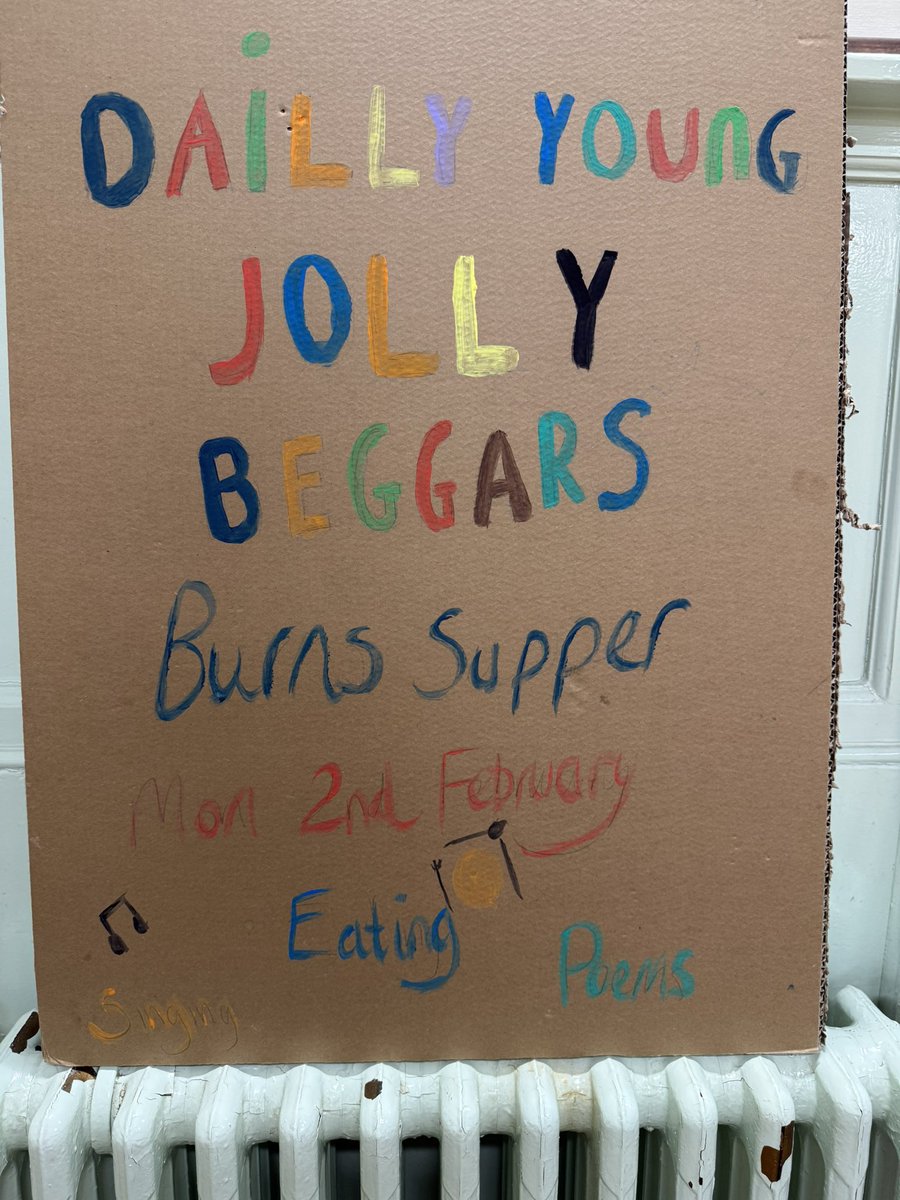 DAiLLY YOUNG
JOLLY
BEGGARS
Burns Supper
Mon 2nd February
Eating
Poems
Singing